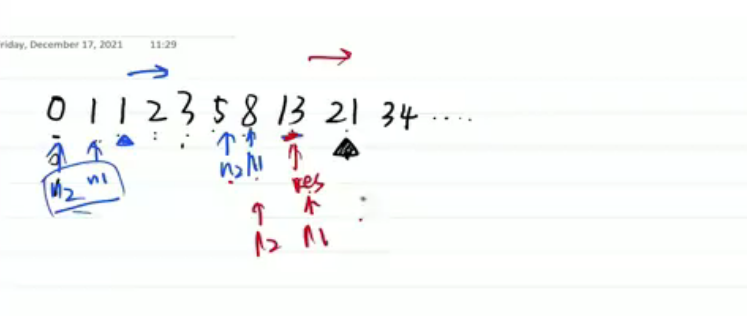 riday, December 17, 2021 11:29
0 1 1 2 3 5 8 13 21 34 ....
n2 n1 n2 n1 res
n2 n1